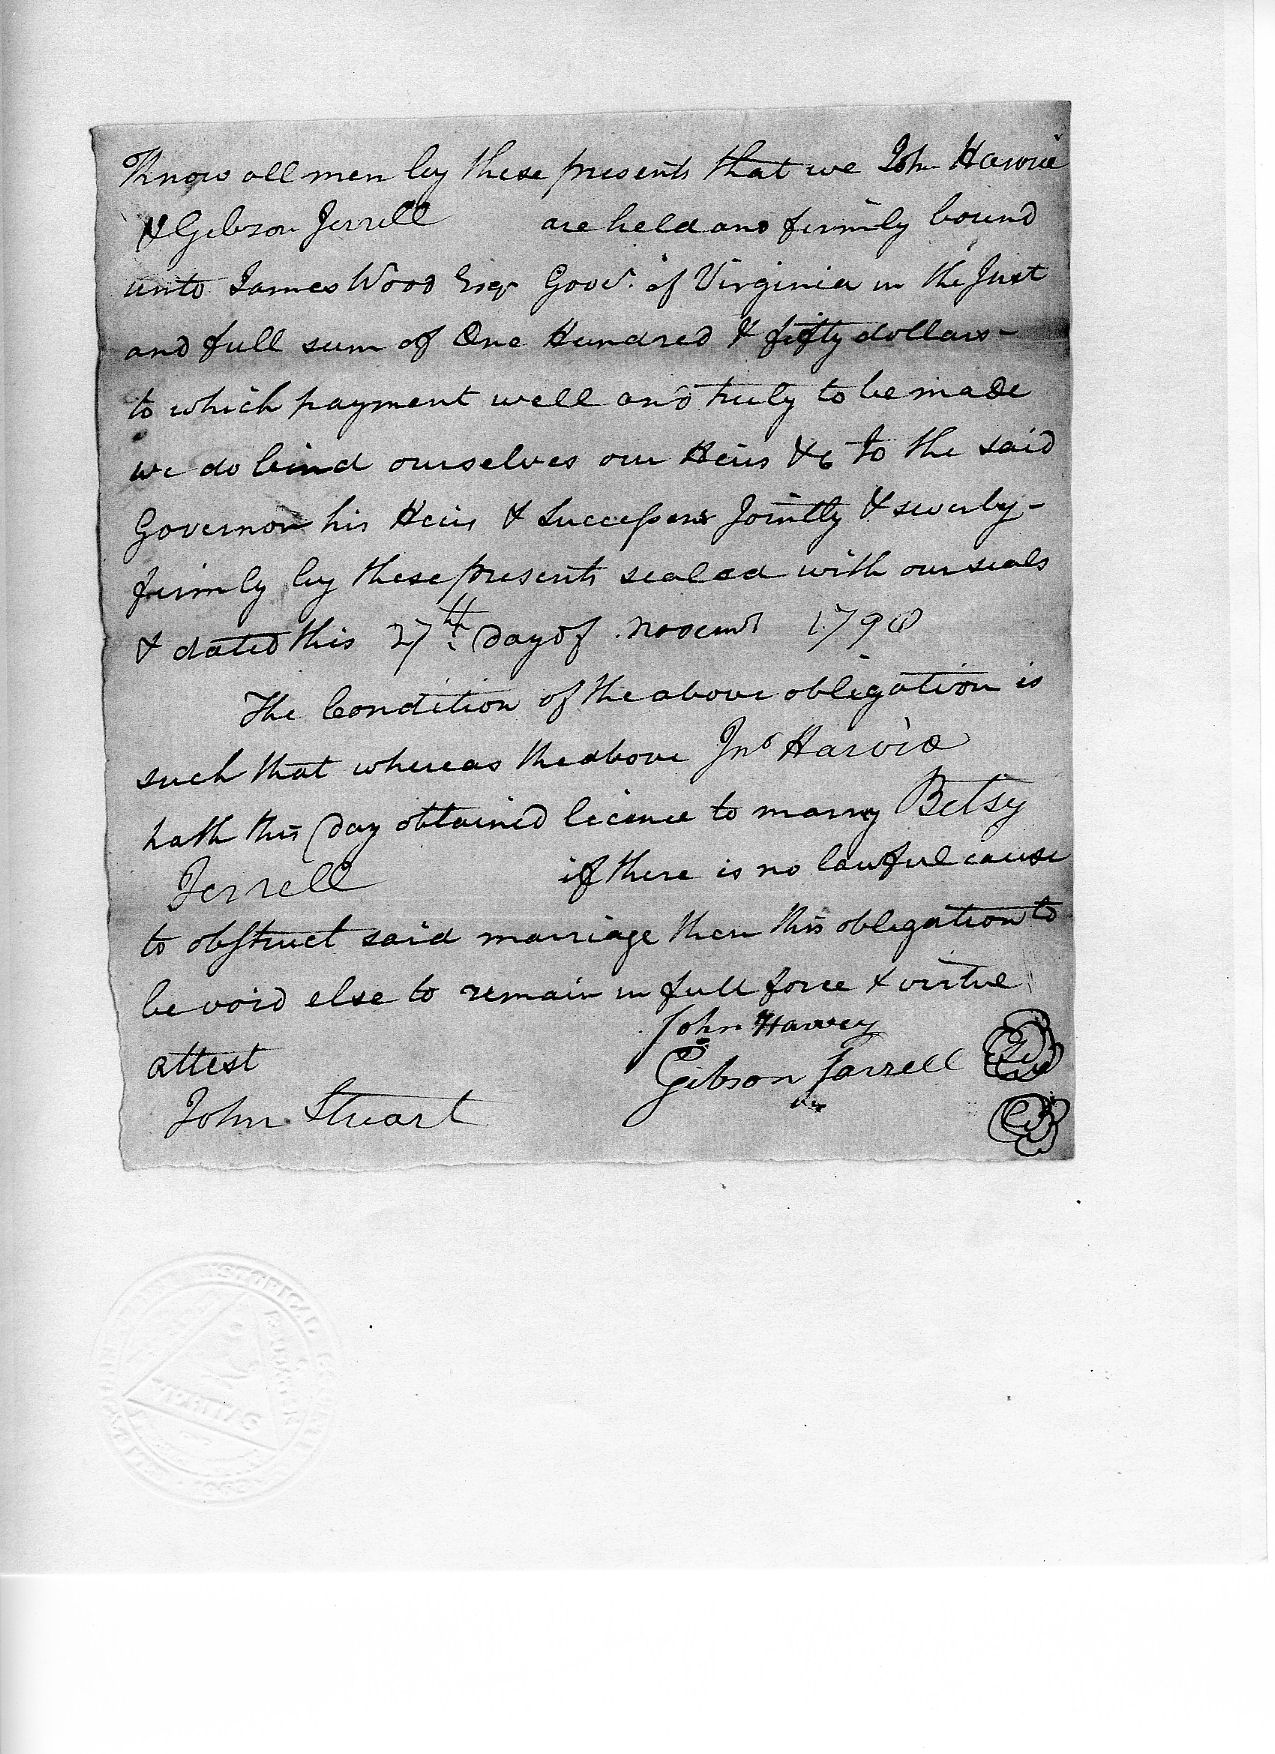 Know all men by these presents that we John Harvie
& Gibson Jerrell are held and firmly bound
unto James Wood Esqr Govr. of Virginia in the Just
and full sum of One Hundred & fifty dollars -
to which payment well and truly to be made
we do bind ourselves our Heirs &c to the said
Governor his Heirs & Successors Jointly & severly -
firmly by these presents sealed with our seals
& dated this 27th day of Novemr 1798
The Condition of the above obligation is
such that whereas the above Jno Harvie
hath this day obtained licence to marry Betsy
Jerrell if there is no lawful cause
to obstruct said marriage then this obligation to
be void else to remain in full force & virtue
John Harvey
attest
Gibson Jarrell
John Stuart